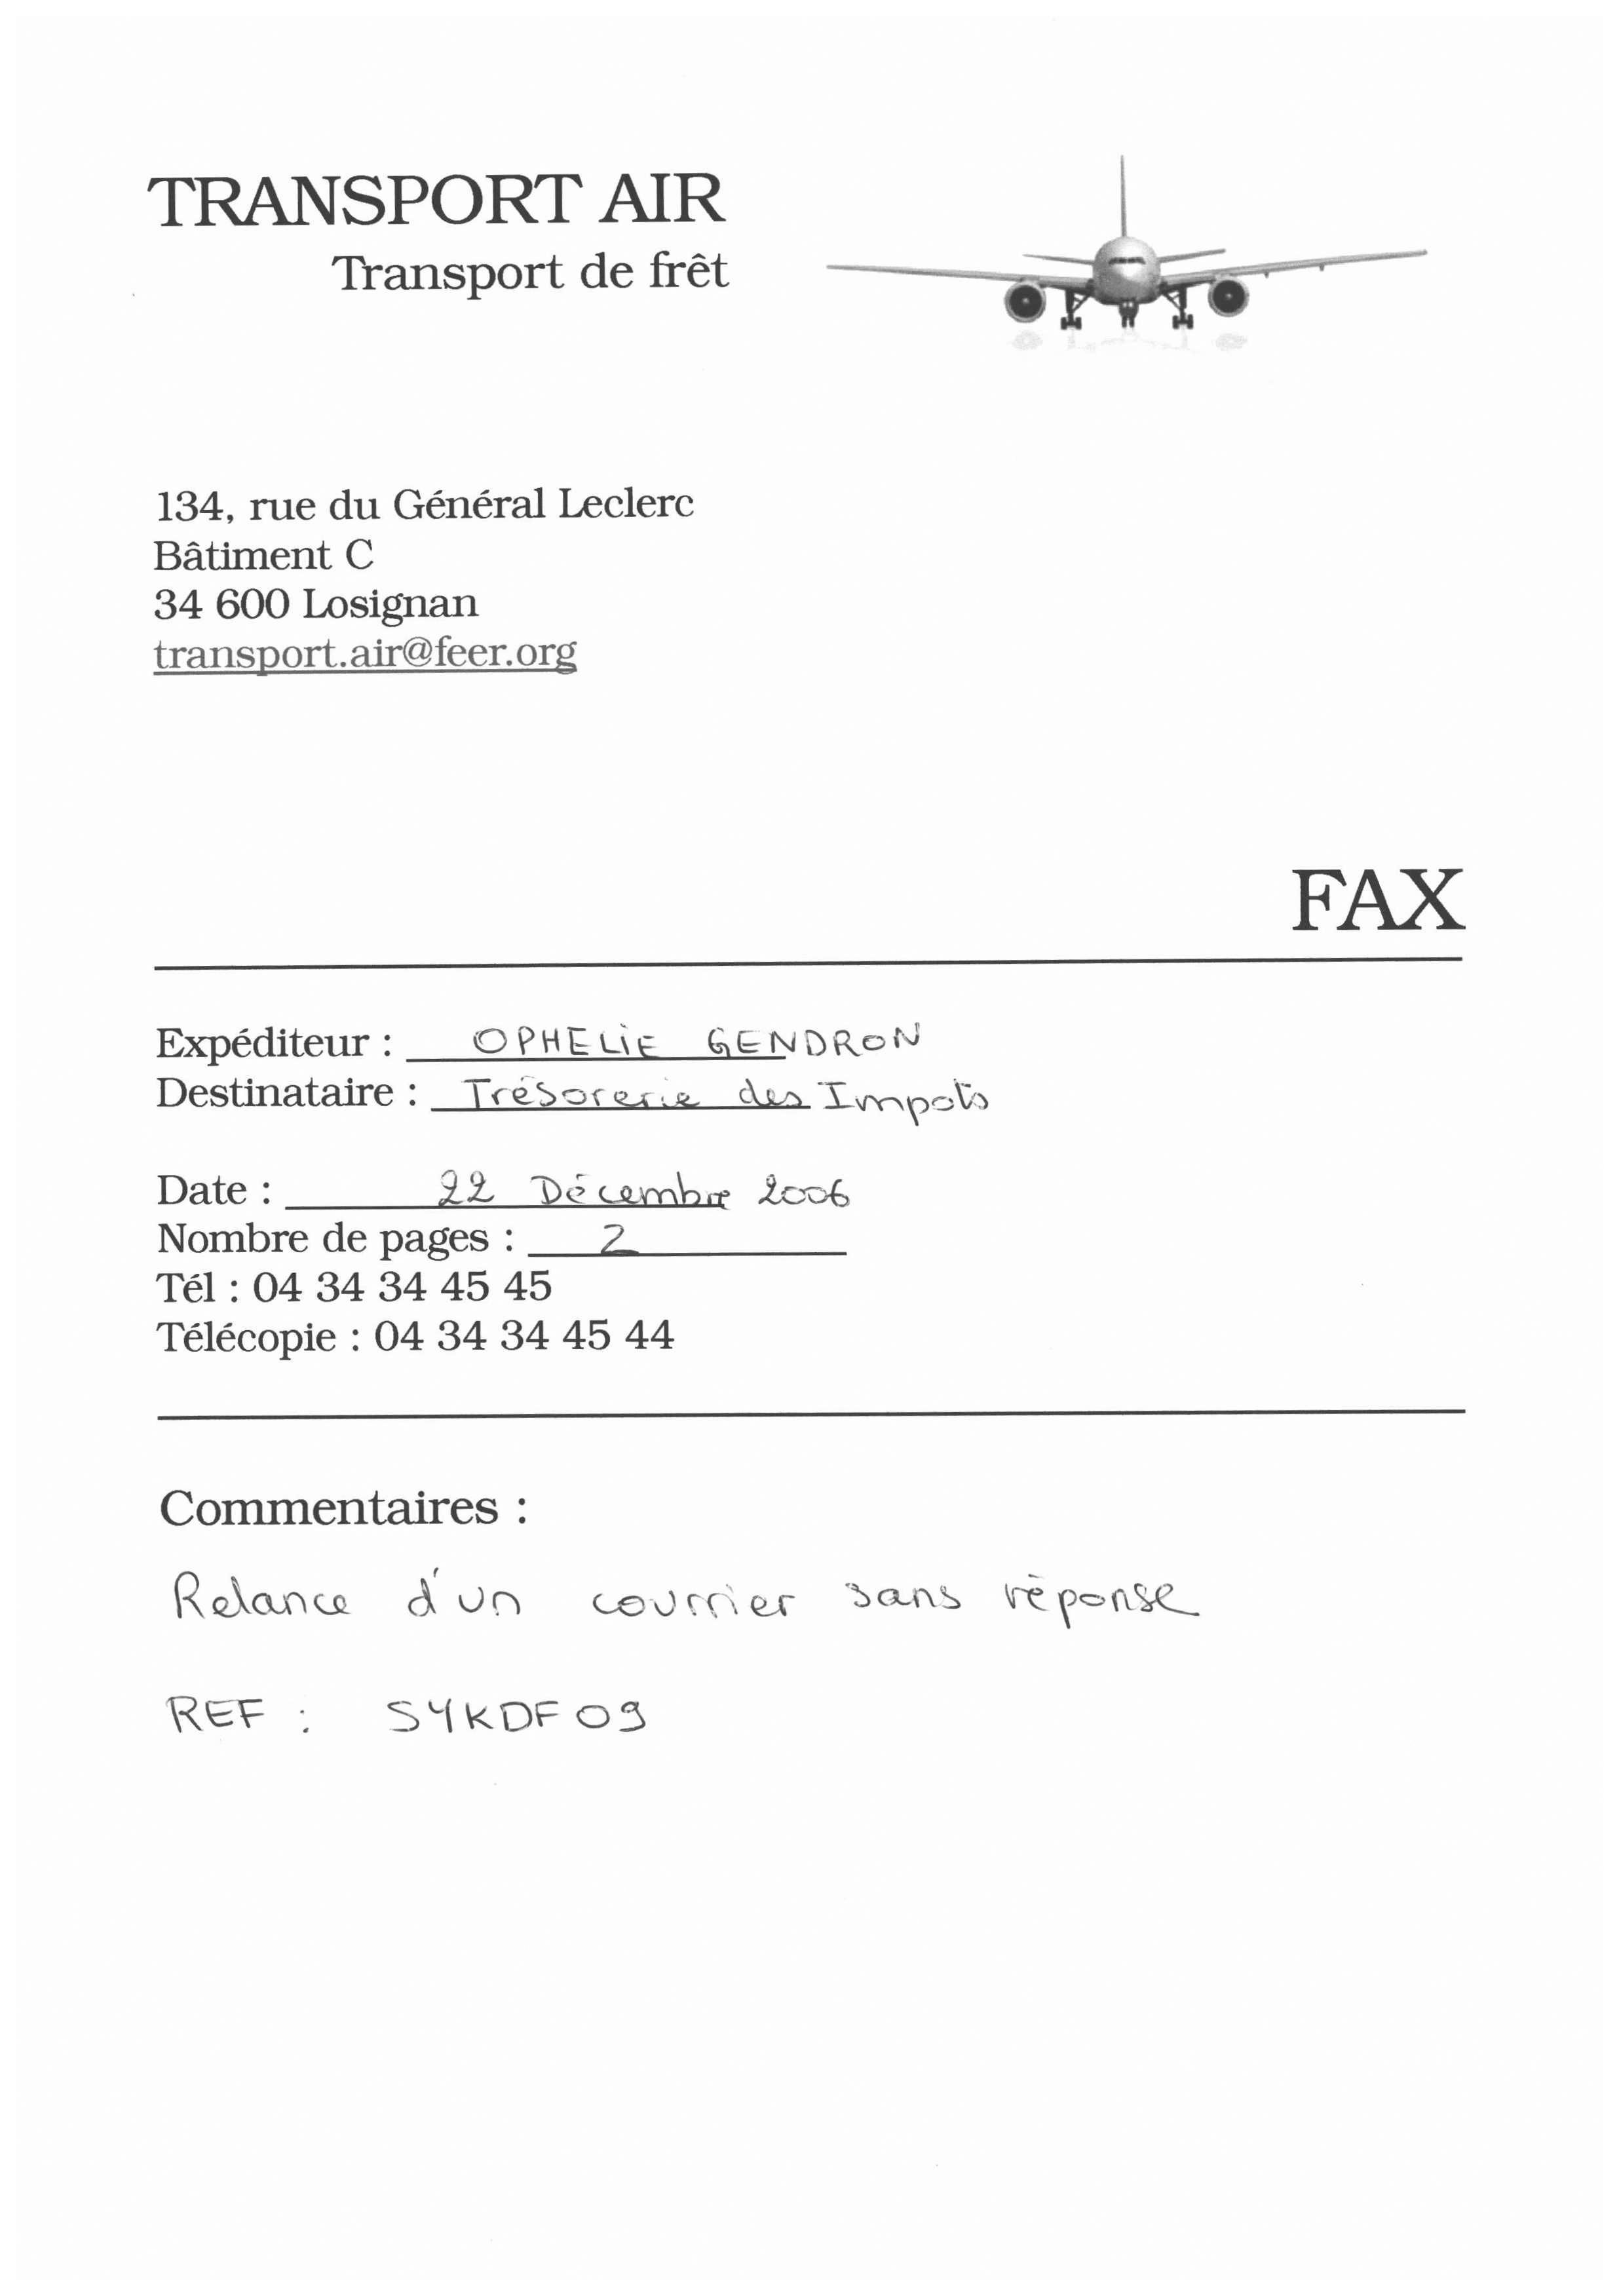 TRANSPORT AIR
Transport de frêt
134, rue du Général Leclerc
Bâtiment C
34 600 Losignan
transport.air@feer.org
FAX
Expéditeur : OPHELIE GENDRON
Destinataire : Trésorerie des Impots
Date : 22 Décembre 2006
Nombre de pages : 2
Tél : 04 34 34 45 45
Télécopie : 04 34 34 45 44
Commentaires :
Relance d'un courrier sans réponse
REF : SYKDF09